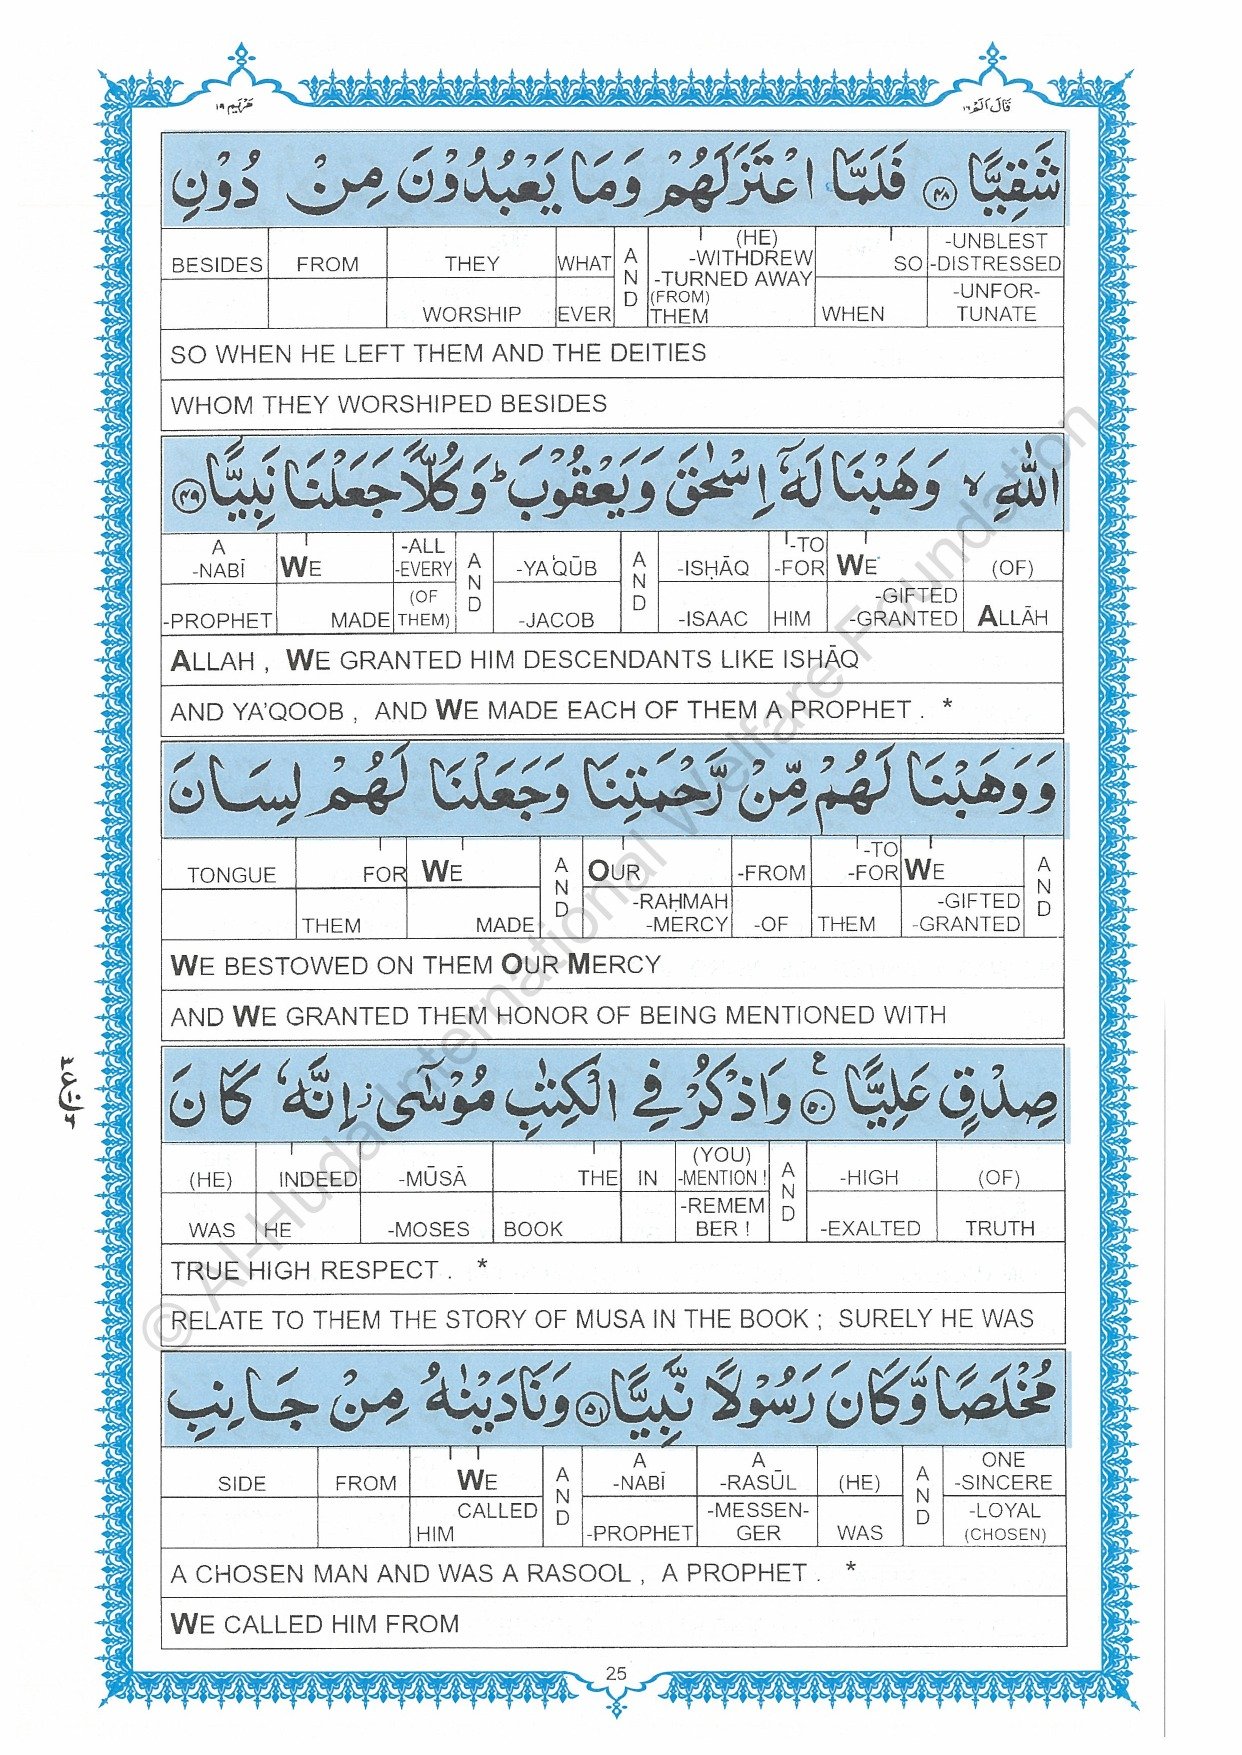 مَرْيَم ١٩
قَالَ اَلَمْ ١٦
شَقِيًّا ﴿٤٨﴾ فَلَمَّا اعْتَزَلَهُمْ وَمَا يَعْبُدُوْنَ مِنْ دُوْنِ
BESIDES FROM THEY WHAT AND (HE) -WITHDREW -TURNED AWAY (FROM) THEM SO -UNBLEST -DISTRESSED
WORSHIP EVER WHEN -UNFOR-TUNATE
SO WHEN HE LEFT THEM AND THE DEITIES
WHOM THEY WORSHIPED BESIDES
اللّٰهِ ۙ وَهَبْنَا لَهٗٓ اِسْحٰقَ وَيَعْقُوْبَ ؕ وَكُلًّا جَعَلْنَا نَبِيًّا ﴿٤٩﴾
A -NABĪ WE -ALL -EVERY AND -YA'QŪB AND -ISḤĀQ -TO -FOR WE (OF)
-PROPHET MADE (OF THEM) -JACOB -ISAAC HIM -GIFTED -GRANTED ALLĀH
ALLAH , WE GRANTED HIM DESCENDANTS LIKE ISHĀQ
AND YA'QOOB , AND WE MADE EACH OF THEM A PROPHET . *
وَوَهَبْنَا لَهُمْ مِّنْ رَّحْمَتِنَا وَجَعَلْنَا لَهُمْ لِسَانَ
TONGUE FOR WE AND OUR -FROM -TO -FOR WE AND
THEM MADE -RAḤMAH -MERCY -OF THEM -GIFTED -GRANTED
WE BESTOWED ON THEM OUR MERCY
AND WE GRANTED THEM HONOR OF BEING MENTIONED WITH
صِدْقٍ عَلِيًّا ﴿٥٠﴾ ع وَاذْكُرْ فِي الْكِتٰبِ مُوْسٰٓى ز اِنَّهٗ كَانَ
(HE) INDEED -MŪSĀ THE IN (YOU) -MENTION ! AND -HIGH (OF)
WAS HE -MOSES BOOK -REMEM BER ! -EXALTED TRUTH
TRUE HIGH RESPECT . *
RELATE TO THEM THE STORY OF MUSA IN THE BOOK ; SURELY HE WAS
مُخْلَصًا وَّكَانَ رَسُوْلًا نَّبِيًّا ﴿٥١﴾ وَنَادَيْنٰهُ مِنْ جَانِبِ
SIDE FROM WE AND A -NABĪ A -RASŪL (HE) AND ONE -SINCERE
CALLED HIM -PROPHET -MESSEN-GER WAS -LOYAL (CHOSEN)
A CHOSEN MAN AND WAS A RASOOL , A PROPHET . *
WE CALLED HIM FROM
25
© Al-Huda International Welfare Foundation